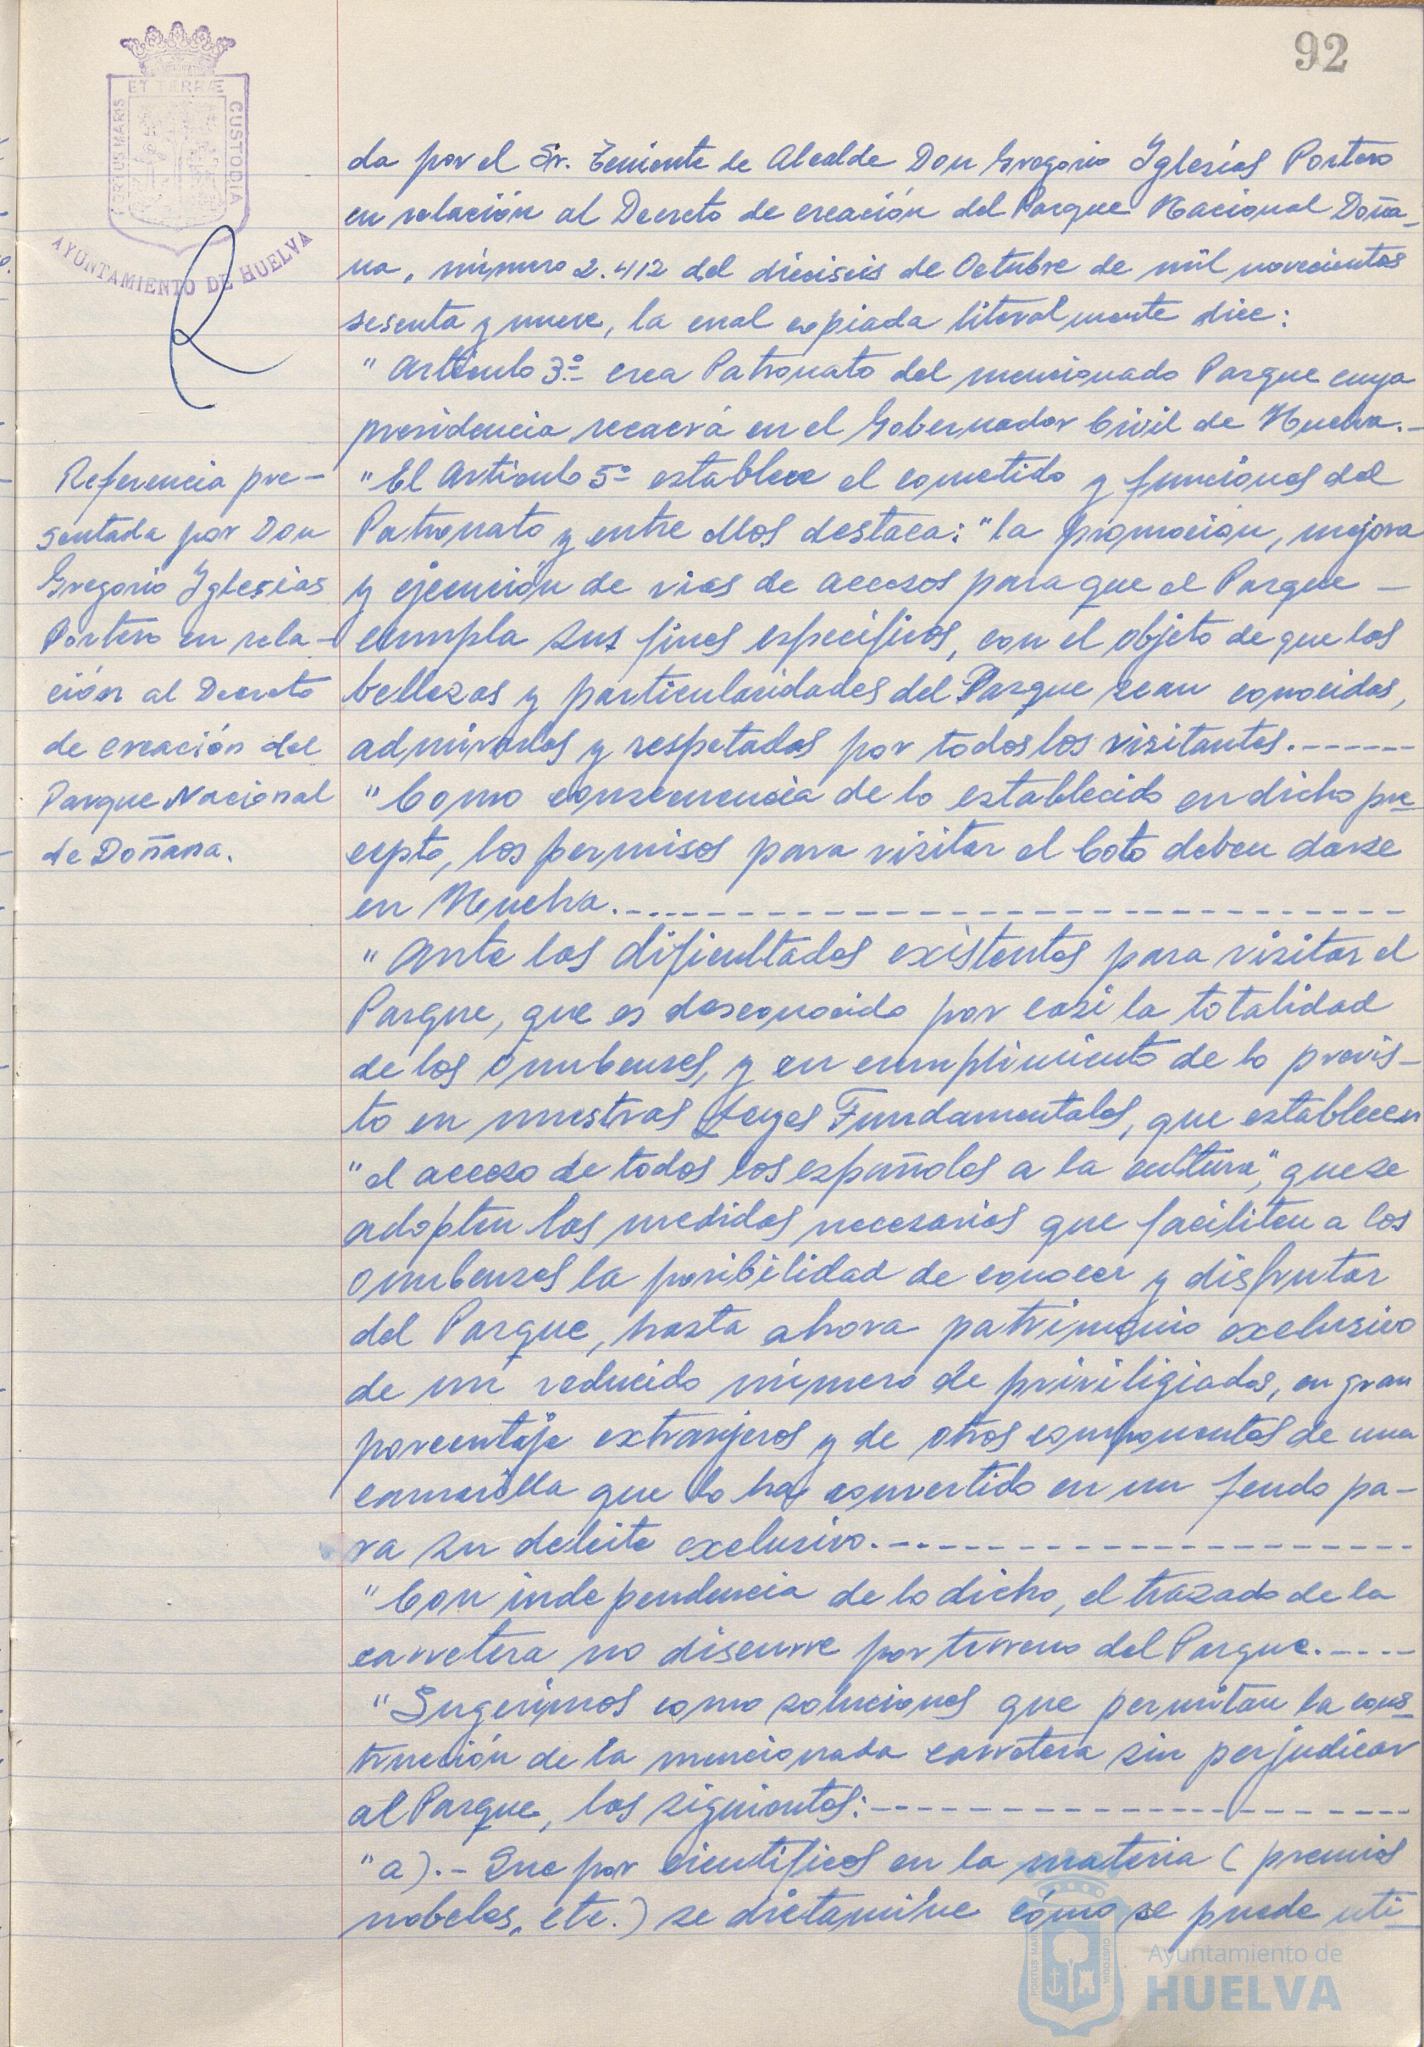 92
ET TERRÆ
PORTUS MARIS
CUSTODIA
AYUNTAMIENTO DE HUELVA
Referencia pre-
sentada por Don
Gregorio Yglesias
Portero en rela-
ción al Decreto
de creación del
Parque Nacional
de Doñana.
da por el Sr. Teniente de Alcalde Don Gregorio Yglesias Portero
en relación al Decreto de creación del Parque Nacional Doña-
na, número 2.412 del dieciseis de Octubre de mil novecientos
sesenta y nueve, la cual copiada literalmente dice:
"Artículo 3º crea Patronato del mencionado Parque cuya
presidencia recaerá en el Gobernador Civil de Huelva.-
"El Artículo 5º establece el cometido y funciones del
Patronato y entre ellos destaca: "la promoción, mejora
y ejecución de vias de accesos para que el Parque -
cumpla sus fines específicos, con el objeto de que las
bellezas y particularidades del Parque sean conocidas,
admiradas y respetadas por todos los visitantes.------
"Como consecuencia de lo establecido en dicho pre-
cepto, los permisos para visitar el Coto deben darse
en Huelva.------------------------------
"Ante las dificultades existentes para visitar el
Parque, que es desconocido por casi la totalidad
de los Onubenses, y en cumplimiento de lo previs-
to en nuestras Leyes Fundamentales, que establecen
"el acceso de todos los españoles a la cultura", que se
adopten las medidas necesarias que faciliten a los
Onubenses la posibilidad de conocer y disfrutar
del Parque, hasta ahora patrimonio exclusivo
de un reducido número de priviligiados, en gran
porcentaje extranjeros y de otros componentes de una
camarilla que lo ha convertido en un feudo pa-
ra su deleite exclusivo.--------------------
"Con independencia de lo dicho, el trazado de la
carretera no discurre por terreno del Parque.----
"Sugerimos como soluciones que permitan la cons-
trucción de la mencionada carretera sin perjudicar
al Parque, las siguientes:--------------------
"a).- Que por cientificos en la materia (premios
nobeles, etc.) se dictamine cómo se puede uti-
Ayuntamiento de
HUELVA